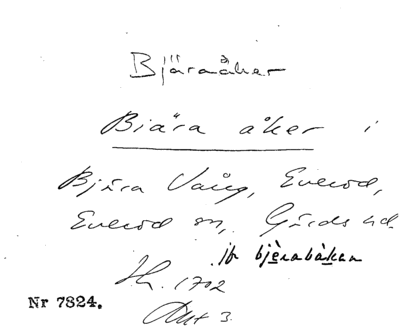 Bjäraåker
Biära åker i
Bjära Vång, Everöd,
Everöd sn, Gärds hd.
jfr bjèrabàkan
Jb. 1702
Akt 3.
Nr 7824.